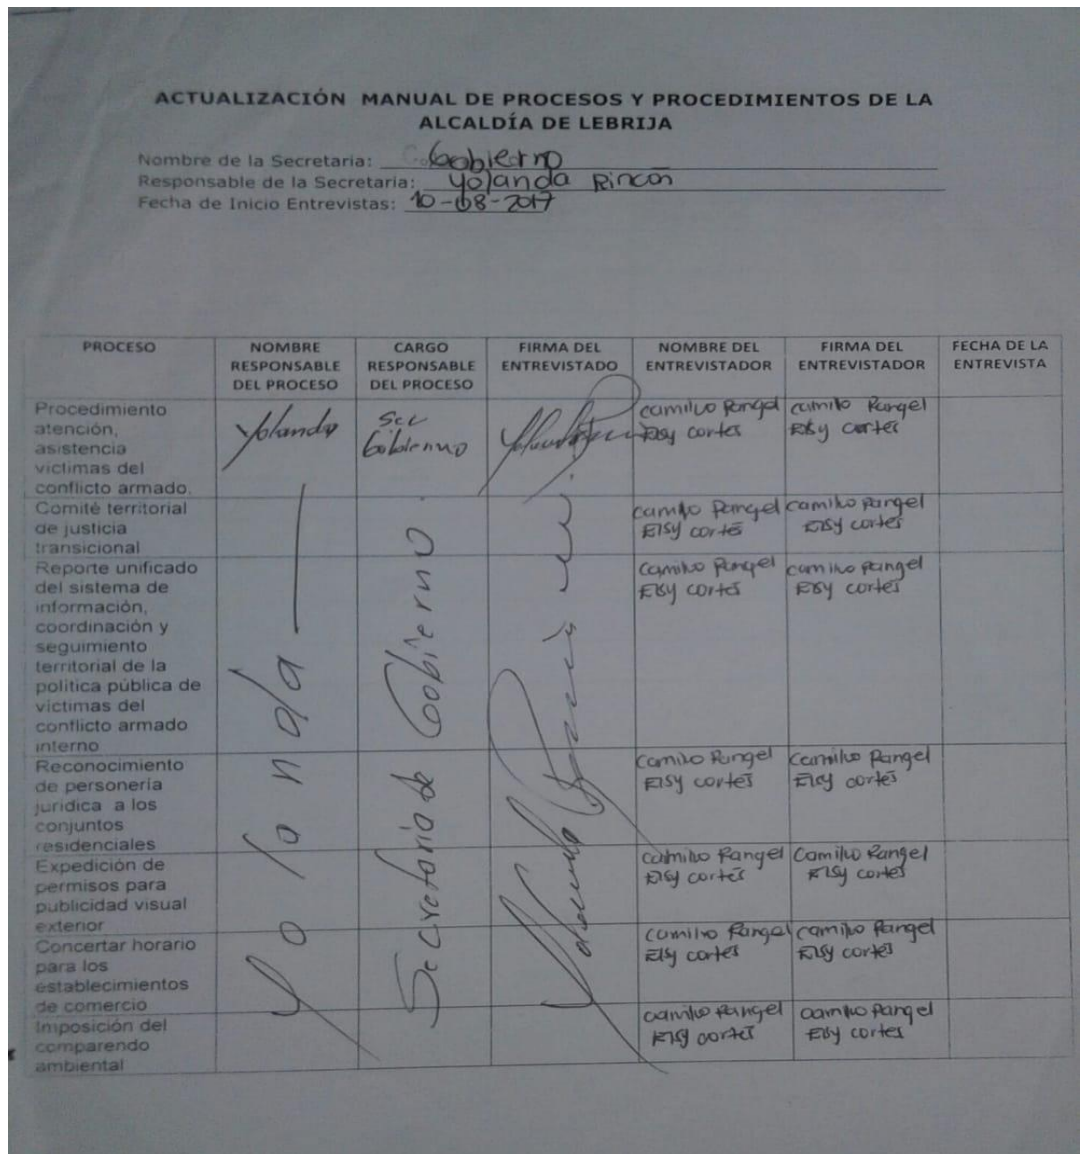 ACTUALIZACIÓN MANUAL DE PROCESOS Y PROCEDIMIENTOS DE LA
ALCALDÍA DE LEBRIJA
Nombre de la Secretaria: Gobierno
Responsable de la Secretaria: Yolanda Rincon
Fecha de Inicio Entrevistas: 10-08-2017
PROCESO
NOMBRE
RESPONSABLE
DEL PROCESO
CARGO
RESPONSABLE
DEL PROCESO
FIRMA DEL
ENTREVISTADO
NOMBRE DEL
ENTREVISTADOR
FIRMA DEL
ENTREVISTADOR
FECHA DE LA
ENTREVISTA
Procedimiento
atención,
asistencia
victimas del
conflicto armado.
Yolanda
Sec
Gobierno
camilo Rangel
Elsy cortés
camilo Rangel
Elsy cortés
Comité territorial
de justicia
transicional
camilo Rangel
Elsy cortés
camilo Rangel
Elsy cortés
Reporte unificado
del sistema de
información,
coordinación y
seguimiento
territorial de la
política pública de
victimas del
conflicto armado
interno
camilo Rangel
Elsy cortés
camilo Rangel
Elsy cortés
Yolanda
Secretaria de Gobierno.
Reconocimiento
de personería
jurídica a los
conjuntos
residenciales
camilo Rangel
Elsy cortés
Camilo Rangel
Elsy cortés
Expedición de
permisos para
publicidad visual
exterior
camilo Rangel
Elsy cortés
Camilo Rangel
Elsy cortés
Concertar horario
para los
establecimientos
de comercio
camilo Rangel
Elsy cortés
camilo Rangel
Elsy cortés
Imposición del
comparendo
ambiental
camilo Rangel
Elsy cortés
camilo Rangel
Elsy cortés